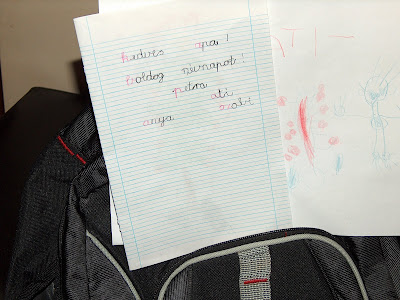 kedves apa!
Boldog névnapot!
petra
ati
anya zoli